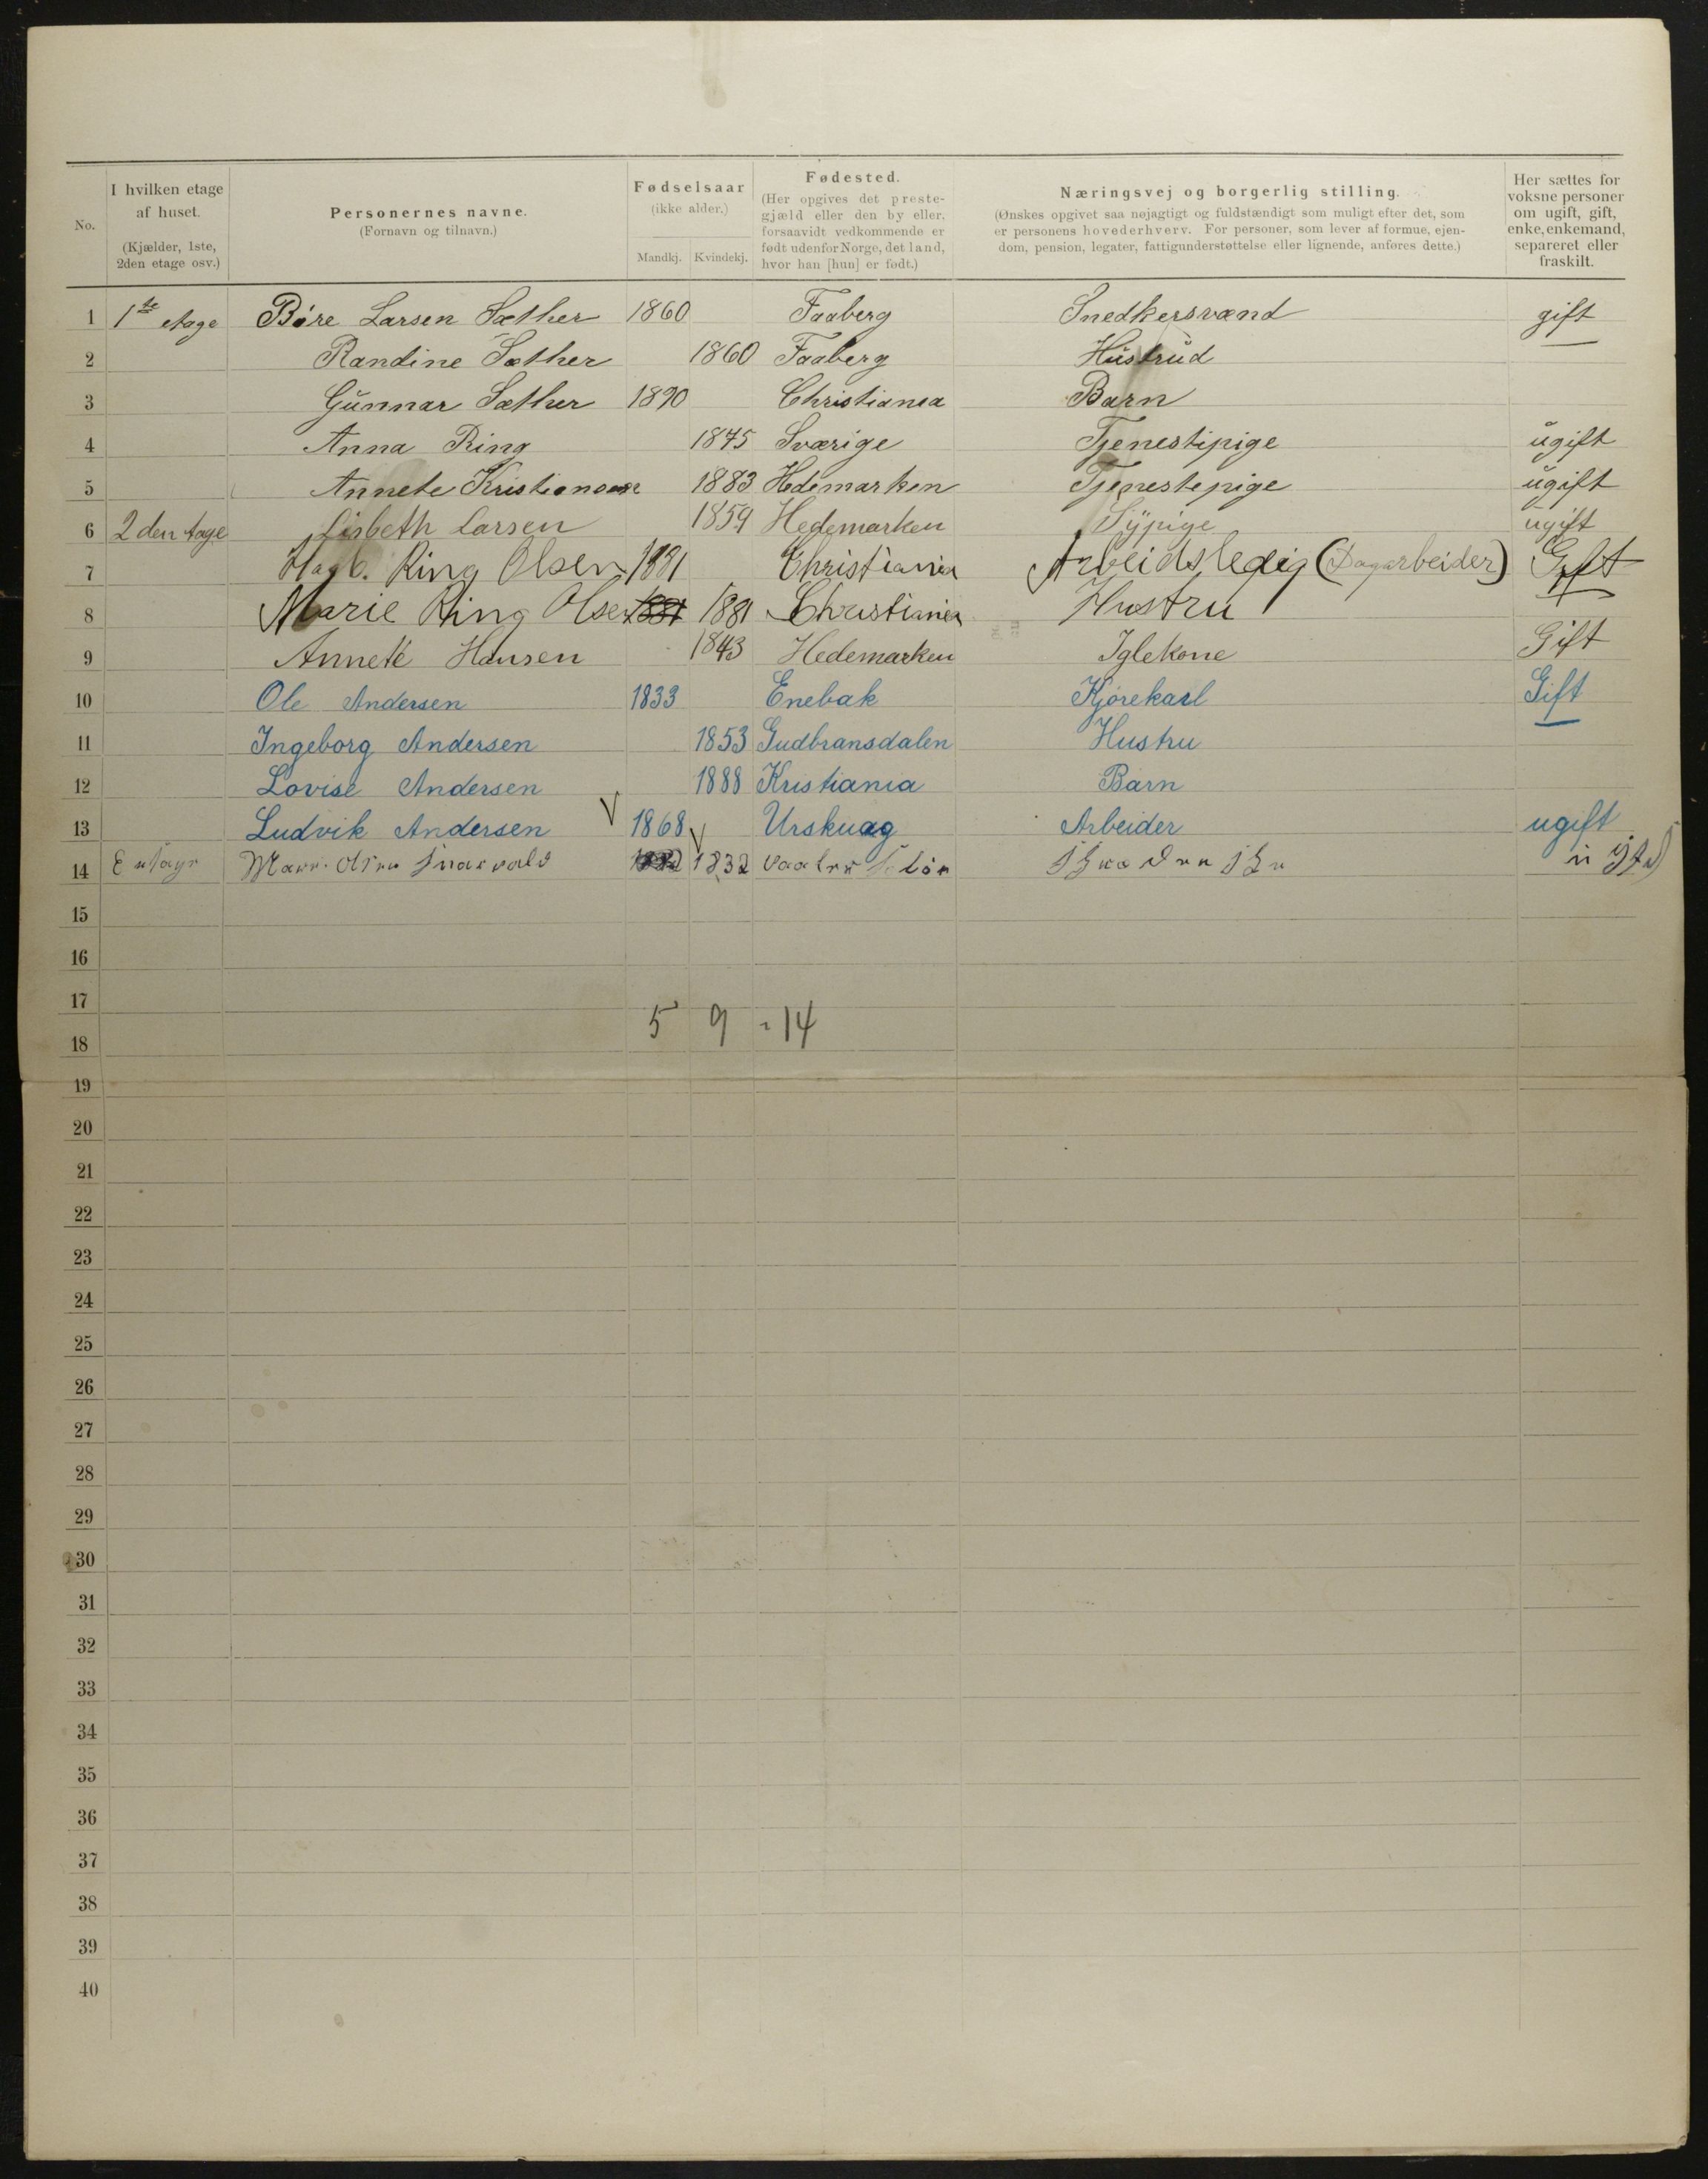 No.
I hvilken etage af huset. (Kjælder, 1ste, 2den etage osv.)
Personernes navne. (Fornavn og tilnavn.)
Fødselsaar (ikke alder.)
Mandkj. Kvindekj.
Fødested. (Her opgives det prestegjæld eller den by eller, forsaavidt vedkommende er født udenfor Norge, det land, hvor han [hun] er født.)
Næringsvej og borgerlig stilling. (Ønskes opgivet saa nøjagtigt og fuldstændigt som muligt efter det, som er personens hovederhverv. For personer, som lever af formue, ejendom, pension, legater, fattigunderstøttelse eller lignende, anføres dette.)
Her sættes for voksne personer om ugift, gift, enke, enkemand, separeret eller fraskilt.
1 1ste etage Børe Larsen Sæther 1860 Faaberg Snedkersvænd gift
2 Randine Sæther 1860 Faaberg Hustrud
3 Gunnar Sæther 1890 Christiania Barn
4 Anna Ring 1845 Sværige Tjenestipige ugift
5 Annete Kristiansen 1883 Hedemarken Tjenestepige ugift
6 2den tage Lisbeth Larsen 1859 Hedemarken Sypige ugift
7 Hagb. Ring Olsen 1881 Christiania Arbeidsledig (Dagarbeider) Gift
8 Marie Ring Olsen 1881 1881 Christiania Hustru
9 Annete Hansen 1843 Hedemarken Iglekone Gift
10 Ole Andersen 1833 Enebak Kjørekarl Gift
11 Ingeborg Andersen 1853 Gudbransdalen Hustru
12 Lovise Andersen 1888 Kristiania Barn
13 Ludvik Andersen 1868 Urskuag Arbeider ugift
14 1832
15
16
17
5 9 = 14
18
19
20
21
22
23
24
25
26
27
28
29
30
31
32
33
34
35
36
37
38
39
40